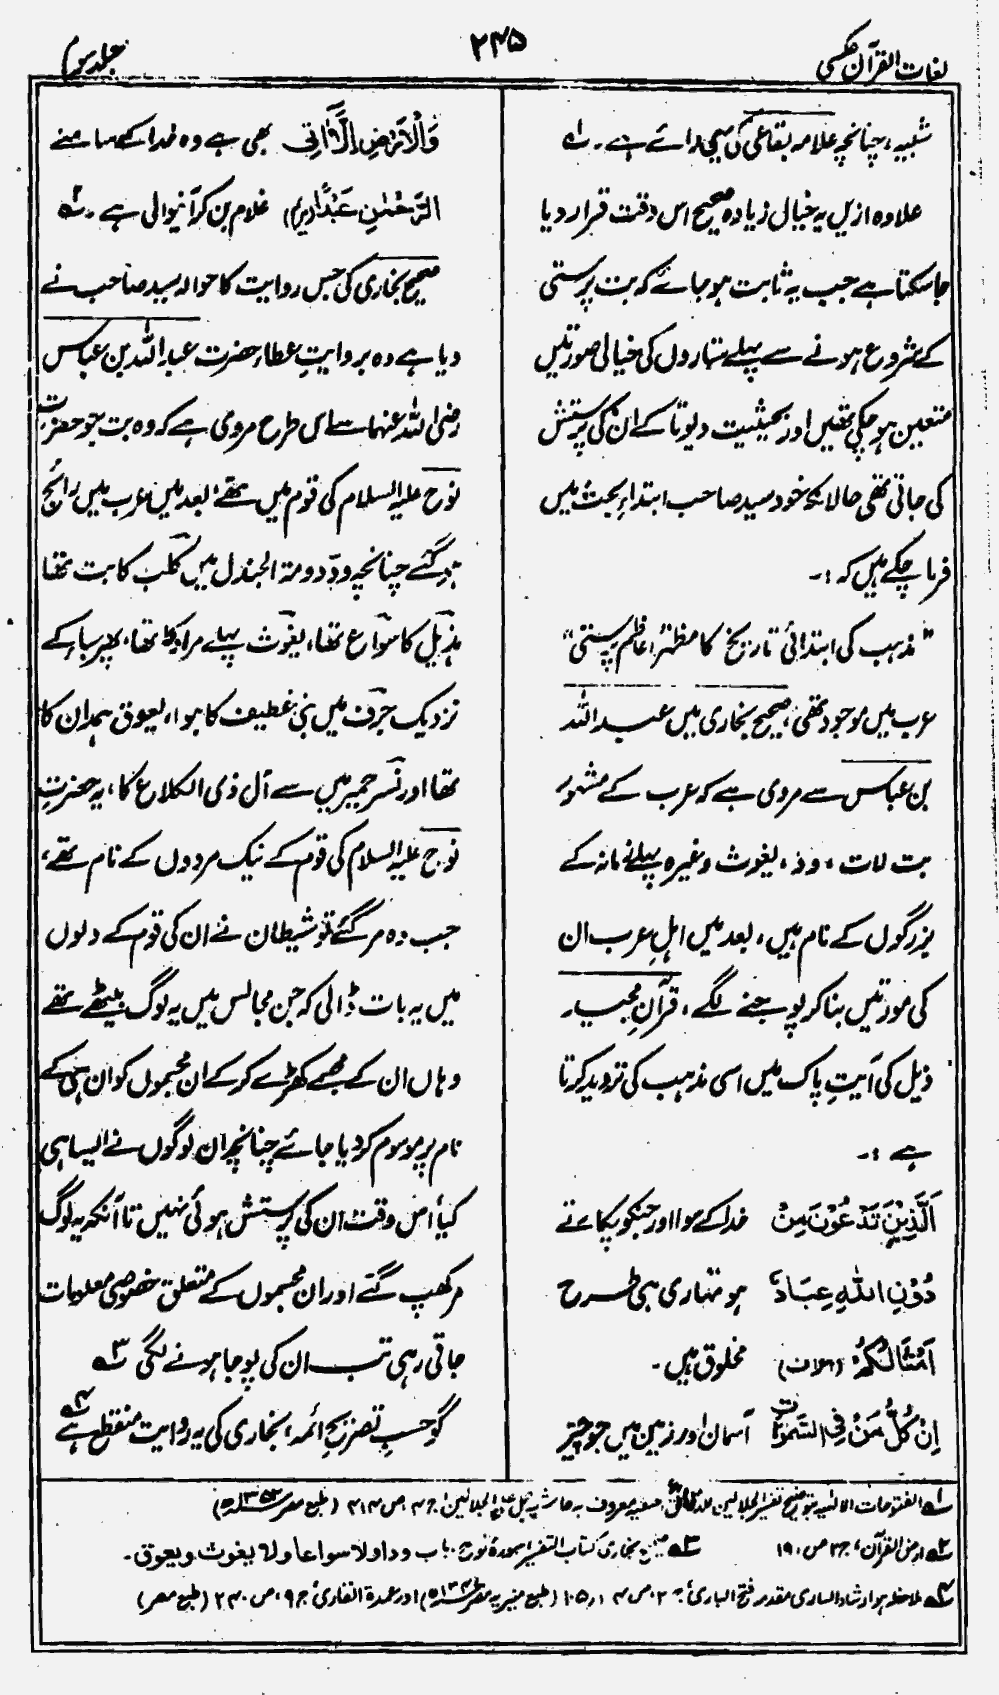 لغات القرآن عکسی
۲۴۵
جلد سوم
شبیہ، چنانچہ علامہ بقاعی کی یہی رائے ہے۔ لہ
علاوہ ازیں یہ خیال زیادہ صحیح اس وقت قرار دیا
جا سکتا ہے جب یہ ثابت ہو جائے کہ بت پرستی
کے شروع ہونے سے پہلے ستاروں کی خیالی صورتیں
متعین ہو چکی تھیں اور بحیثیت دیوتا کے ان کی پرستش
کی جاتی تھی حالانکہ خود سید صاحب ابتداءِ بحث میں
فرما چکے ہیں کہ :۔
"مذہب کی ابتدائی تاریخ کا مظہر اعاظم پرستی"
عرب میں موجود تھی، صحیح بخاری میں عبد اللہ
بن عباس سے مروی ہے کہ عرب کے مشہور
بت لات، ود، یغوث وغیرہ پہلے زمانہ کے
بزرگوں کے نام ہیں، بعد میں اہلِ عرب ان
کی مورتیں بنا کر پوجنے لگے، قرآن مجید
ذیل کی آیتِ پاک میں اسی مذہب کی تردید کرتا
ہے :۔
اَلَّذِيْنَ تَدْعُوْنَ مِنْ خدا کے سوا اور جنکو پکارتے
دُوْنِ اللّٰهِ عِبَادٌ ہو تمہاری ہی طرح
اَمْثَالُكُمْ (اعراف) مخلوق ہیں۔
اِنْ كُلُّ مَنْ فِی السَّمٰوٰتِ آسمان اور زمین میں جو چیز
وَالْاَرْضِ اِلَّا اٰتِی بھی ہے وہ خدا کے سامنے
الرَّحْمٰنِ عَبْدًا (مریم) غلام بن کر آنیوالی ہے۔ ۲ہ
صحیح بخاری کی جس روایت کا حوالہ سید صاحب نے
دیا ہے وہ بروایتِ عطاء حضرت عبد اللہ بن عباس
رضی اللہ عنہما سے اس طرح مروی ہے کہ وہ بت جو حضرت
نوح علیہ السلام کی قوم میں تھے، بعد میں عرب میں رائج
ہو گئے چنانچہ ود دومۃ الجندل میں کلب کا بت تھا
ہذیل کا سواع تھا، یغوث پہلے مراد کا تھا، پھر سبا کے
نزدیک جرف میں بنی غطیف کا ہوا، یعوق ہمدان کا
تھا اور نسر حمیر میں سے آل ذی الکلاع کا، یہ حضرت
نوح علیہ السلام کی قوم کے نیک مردوں کے نام تھے،
جب وہ مر گئے تو شیطان نے ان کی قوم کے دلوں
میں یہ بات ڈالی کہ جن مجالس میں یہ لوگ بیٹھتے تھے
وہاں ان کے مجسمے کھڑے کر کے ان مجسموں کو ان ہی کے
نام پر موسوم کر دیا جائے چنانچہ ان لوگوں نے ایسا ہی
کیا اس وقت ان کی پرستش ہوئی نہیں تا آنکہ یہ لوگ
مر کھپ گئے اور ان مجسموں کے متعلق خصوصی معلومات
جاتی رہی تب ان کی پوجا ہونے لگی ۳ہ
گو حسبِ تصریحِ ائمہ، بخاری کی یہ روایت منقطع ہے ۴ہ
۱ہ الفتوحات الالہیہ بتوضیح تفسیر الجلالین للدقائق الخفیہ معروف بہ حاشیہ جمل علی الجلالین، ج ۴، ص ۴۱۳ (طبع مصر ۱۳۵۲ھ)
۲ہ ارض القرآن، ج ۲ ص ۱۹۰ ۳ہ صحیح بخاری کتاب التفسیر سورۂ نوح، باب ودا ولا سواعا ولا یغوث ویعوق۔
۴ہ ملاحظہ ہو ارشاد الساری مقدمہ فتح الباری، ج ۲، ص ۱۰۵، ۱۰۴ (طبع منیریہ مصر ۱۳۴۷ھ) اور عمدۃ القاری، ج ۹، ص ۲۴۰ (طبع مصر)